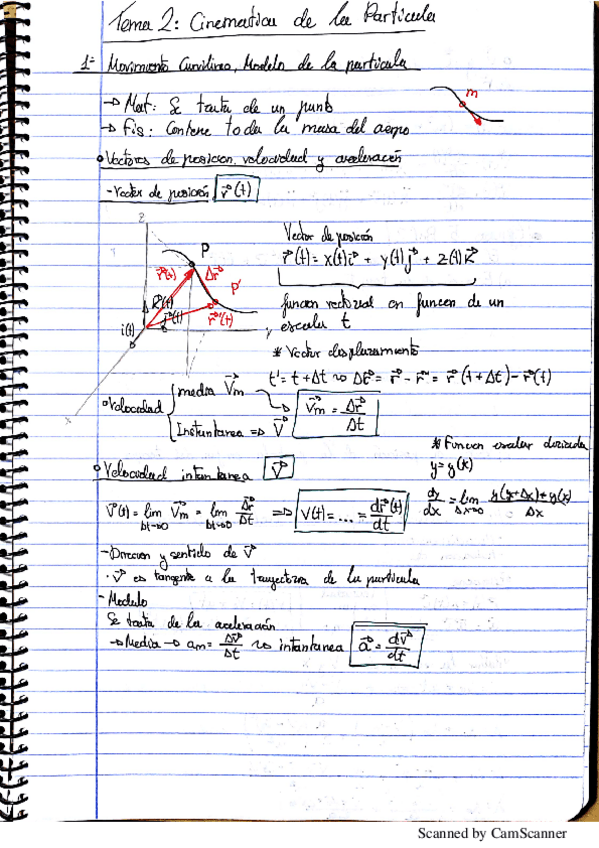 Tema 2: Cinematica de la Particula
1- Movimiento Curvilineo, Modelo de la particula
m
→ Mat: Se trata de un punto
→ Fis: Contiene toda la masa del cuerpo
• Vectores de posicion, velocidad y aceleración
- Vector de posición r⃗(t)
z
P
r⃗(t) Δr⃗
P'
k⃗(t)
j⃗(t) r⃗'(t)
i(t)
y
x
Vector de posición
r⃗(t) = x(t)i⃗ + y(t)j⃗ + z(t)k⃗
funcion vectorial en funcion de un
escalar t
* Vector desplazamiento
t' = t + Δt ~> Δr⃗ = r⃗' - r⃗ = r⃗(t+Δt) - r⃗(t)
• Velocidad
media V⃗m → V⃗m = Δr⃗/Δt
Instantanea => V⃗
* Funcion escalar derivada
y = y(x)
dy/dx = lim Δx→0 y(x+Δx)+y(x)/Δx
• Velocidad instantanea V⃗
V⃗(t) = lim Δt→0 V⃗m = lim Δt→0 Δr⃗/Δt => V(t) = ... = dr⃗(t)/dt
- Direccion y sentido de V⃗
· V⃗ es tangente a la trayectoria de la particula
- Modulo
Se trata de la aceleración
→ Media → am = ΔV⃗/Δt ~> instantanea a⃗ = dv⃗/dt
Scanned by CamScanner